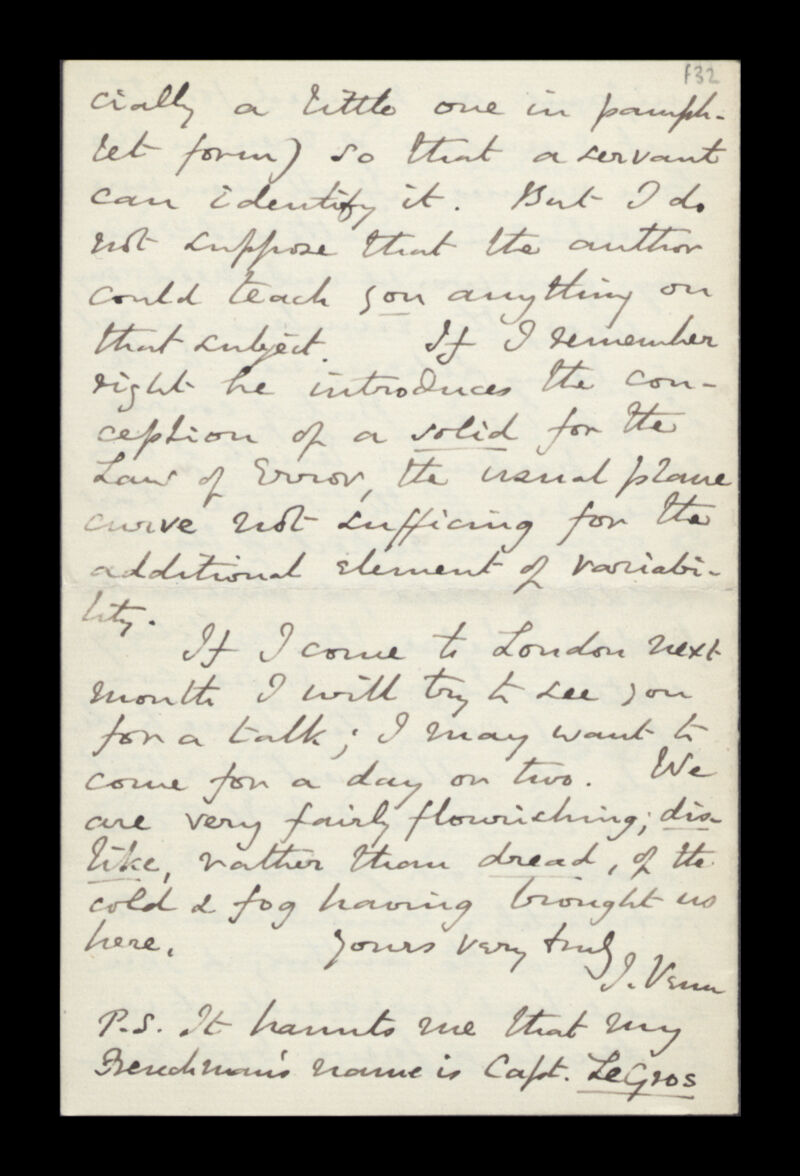 f32
cially a little one in pamph-
let form) so that a servant
can identify it. But I do
not suppose that the author
could teach you anything on
that subject. If I remember
right he introduces the con-
ception of a solid for the
Law of Error, the usual plane
curve not sufficing for the
additional element of variabi-
lity.
If I come to London next
month I will try to see you
for a talk; I may want to
come for a day or two. We
are very fairly flourishing; dis-
like, rather than dread, of the
cold & fog having brought us
here. Yours very truly
J. Venn
P.S. It haunts me that my
Frenchman's name is Capt. LeGros